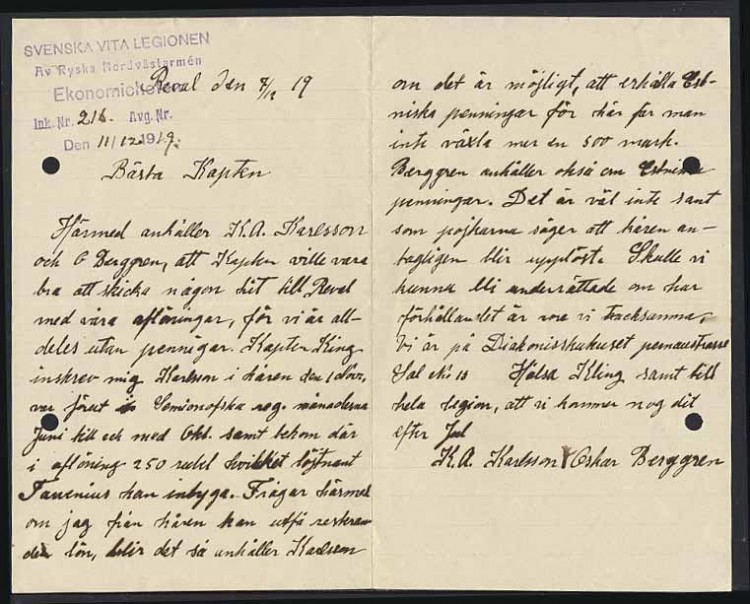 SVENSKA VITA LEGIONEN
Av Ryska Nordvästarmén
Ekonomichefen
Ink. Nr. 216. Avg. Nr.
Den 11/12 1919.
Reval den 8/12 19
Bästa Kapten
Härmed anhåller K.A. Karlsson
och O Berggren, att Kapten ville vara
bra att skicka någon hit till Reval
med våra aflöningar, för vi är all-
deles utan penningar. Kapten Kling
inskrev mig Karlsson i hären den 1 Nov,
var förut i Semionofska reg. månaderna
Juni till och med Okt. samt bekom där
i aflöning 250 rubel hvilket löjtnant
Tavenius kan intyga. Frågar härmed
om jag från hären kan utfå resteran
de lön, blir det så anhåller Karlsson
om det är möjligt, att erhålla Est-
niska penningar för här får man
inte växla mer en 500 mark.
Berggren anhåller också om Estniska
penningar. Det är väl inte sant
som pojkarna säger att hären an-
tagligen blir upplöst. Skulle vi
kunna bli underrättade om hur
förhållandet är vore vi tacksamma,
Vi är på Diakonisshuset pernaustrasse
Sal No 18 Hälsa Kling samt till
hela legion, att vi kommer nog dit
efter Jul
K.A. Karlsson Oskar Berggren